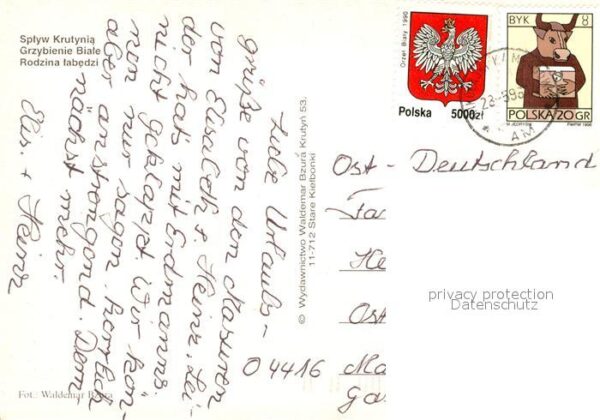 Spływ Krutynią
Grzybienie Białe
Rodzina łabędzi
Liebe Urlaubs-
grüße von den Masuren
von Elsabeth & Heinz. Lei-
der hat's mit Erdmanns
nicht geklappt. Wir kön-
nen nur sagen, herrlich
aber anstrengend. Dem-
nächst mehr.
Elis. + Heinz
© Wydawnictwo Waldemar Bzura Krutyń 53,
11-712 Stare Kiełbonki
Fot.: Waldemar Bzura
Orzeł Biały 1990
Polska 5000zł
BYK 8
POLSKA 20 GR
Ost- Deutschland
Fa
He
Ost
04416 Ma
Ga
privacy protection
Datenschutz